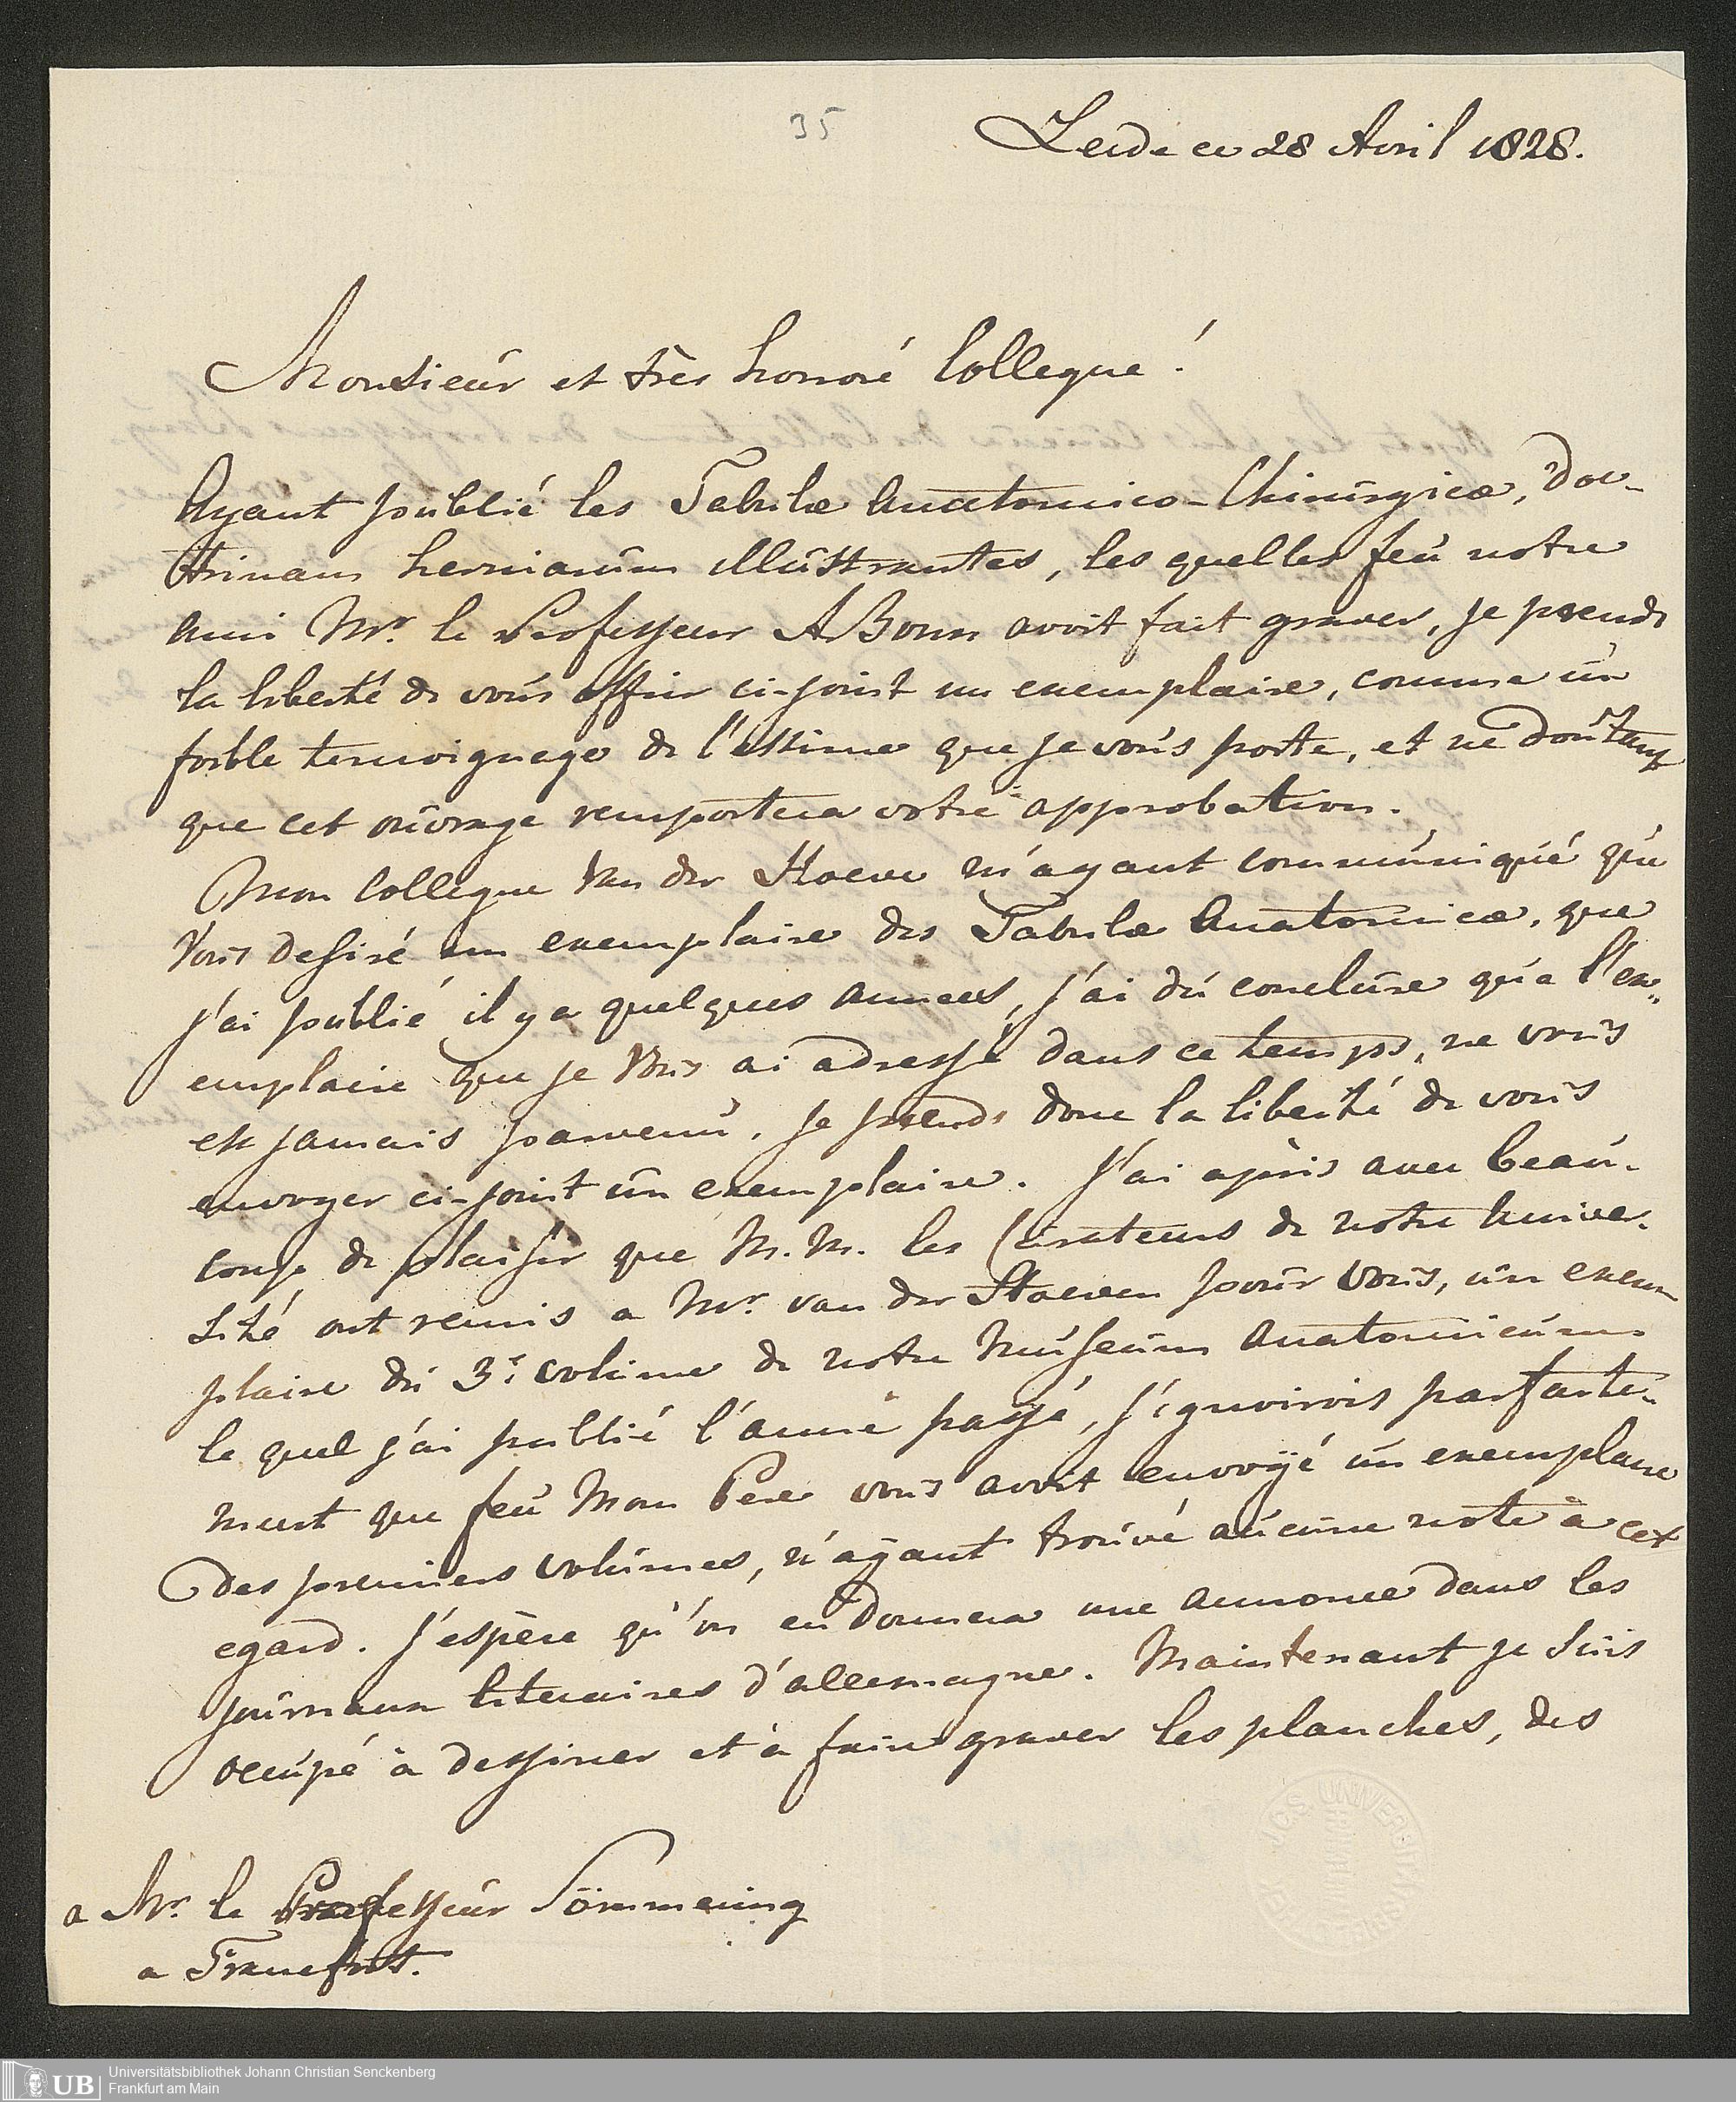 35
Leide ce 28 Avril 1828.
Monsieur et très honoré Collegue!
Ayant publié les Tabulæ Anatomico-Chirurgicæ, doc-
trinam herniarum illustrantes, les quelles feu notre
ami Mr. le Professeur A Bonn avoit fait graver, je prends
la liberté de vous offrir ci-joint un exemplaire, comme un
foible temoignage de l'estime que je vous porte, et ne doutant
que cet ouvrage remportera votre approbation.
Mon Collegue van der Hoeve m'ayant communiqué que
Vous desiré un exemplaire des Tabulæ Anatomicæ, que
j'ai publié il y a quelques annees, j'ai du conclure qu'a l'ex„
emplaire que je Vous ai adressé dans ce temps, ne vous
est jamais parvenu, je prends donc la liberté de vous
envoyer ci-joint un exemplaire. J'ai apris avec beau-
coup de plaisir que M.M. les Curateurs de notre univer-
sité ont remis a Mr. van der Hoeven pour Vous, un exem
plaire du 3e. volume de notre Museum Anatomicum
le quel j'ai publié l'anné passé, j'ignorois parfaite-
ment que feu Mon Pere vous avoit envoyé un exemplaire
des premiers volumes, n'ayant trouvé aucune note à cet
egard. J'espère qu'on en donnera une annonce dans les
journaux literaires d'allemagne. Maintenant je suis
occupé à dessiner et à faire graver les planches, des
a Mr. le Professeur Sömmering
a Francfort.
J.C.S. UNIVERSITÄTS
UB Universitätsbibliothek Johann Christian Senckenberg
Frankfurt am Main